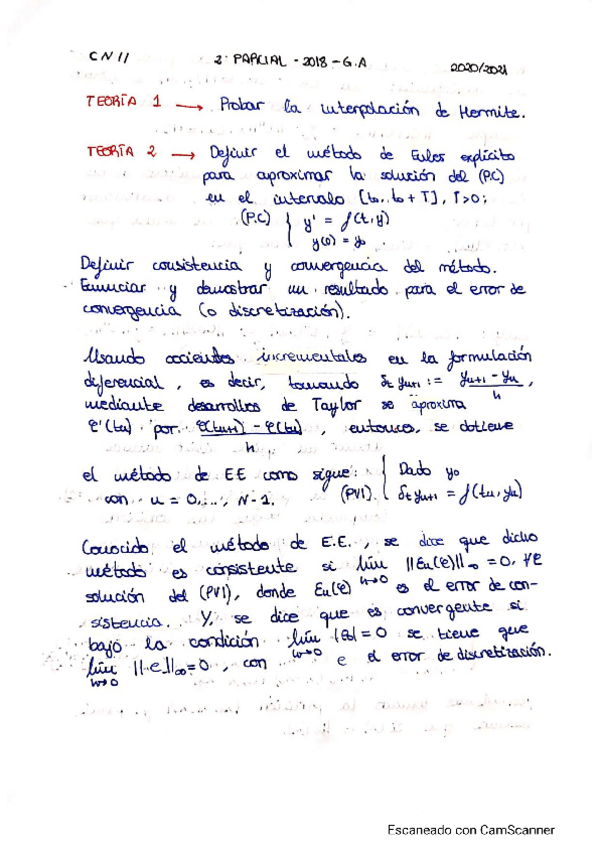 CN II 2º PARCIAL - 2018 - G.A 2020/2021
TEORÍA 1 → Probar la interpolación de Hermite.
TEORÍA 2 → Definir el método de Euler explícito
para aproximar la solución del (P.C)
en el intervalo [t₀, t₀ + T], T>0;
(P.C) { y' = f(t,y)
y(0) = y₀
Definir consistencia y convergencia del método.
Enunciar y demostrar un resultado para el error de
convergencia (o discretización).
Usando cocientes incrementales en la formulación
diferencial, es decir, tomando δₜyₙ₊₁ := (yₙ₊₁ - yₙ)/h,
mediante desarrollos de Taylor se aproxima
φ'(tₙ) por (φ(tₙ₊₁) - φ(tₙ))/h, entonces, se obtiene
el método de EE como sigue: (PVI) { Dado y₀
con n = 0,..., N-1. δₜyₙ₊₁ = f(tₙ, yₙ)
Conocido el método de E.E., se dice que dicho
método es consistente si lím h→0 ||Eₙ(φ)||∞ = 0, ∀φ
solución del (PVI), donde Eₙ(φ) es el error de con-
sistencia. Y, se dice que es convergente si
bajo la condición lím h→0 |e₀| = 0 se tiene que
lím h→0 ||e||∞ = 0, con e el error de discretización.
Escaneado con CamScanner